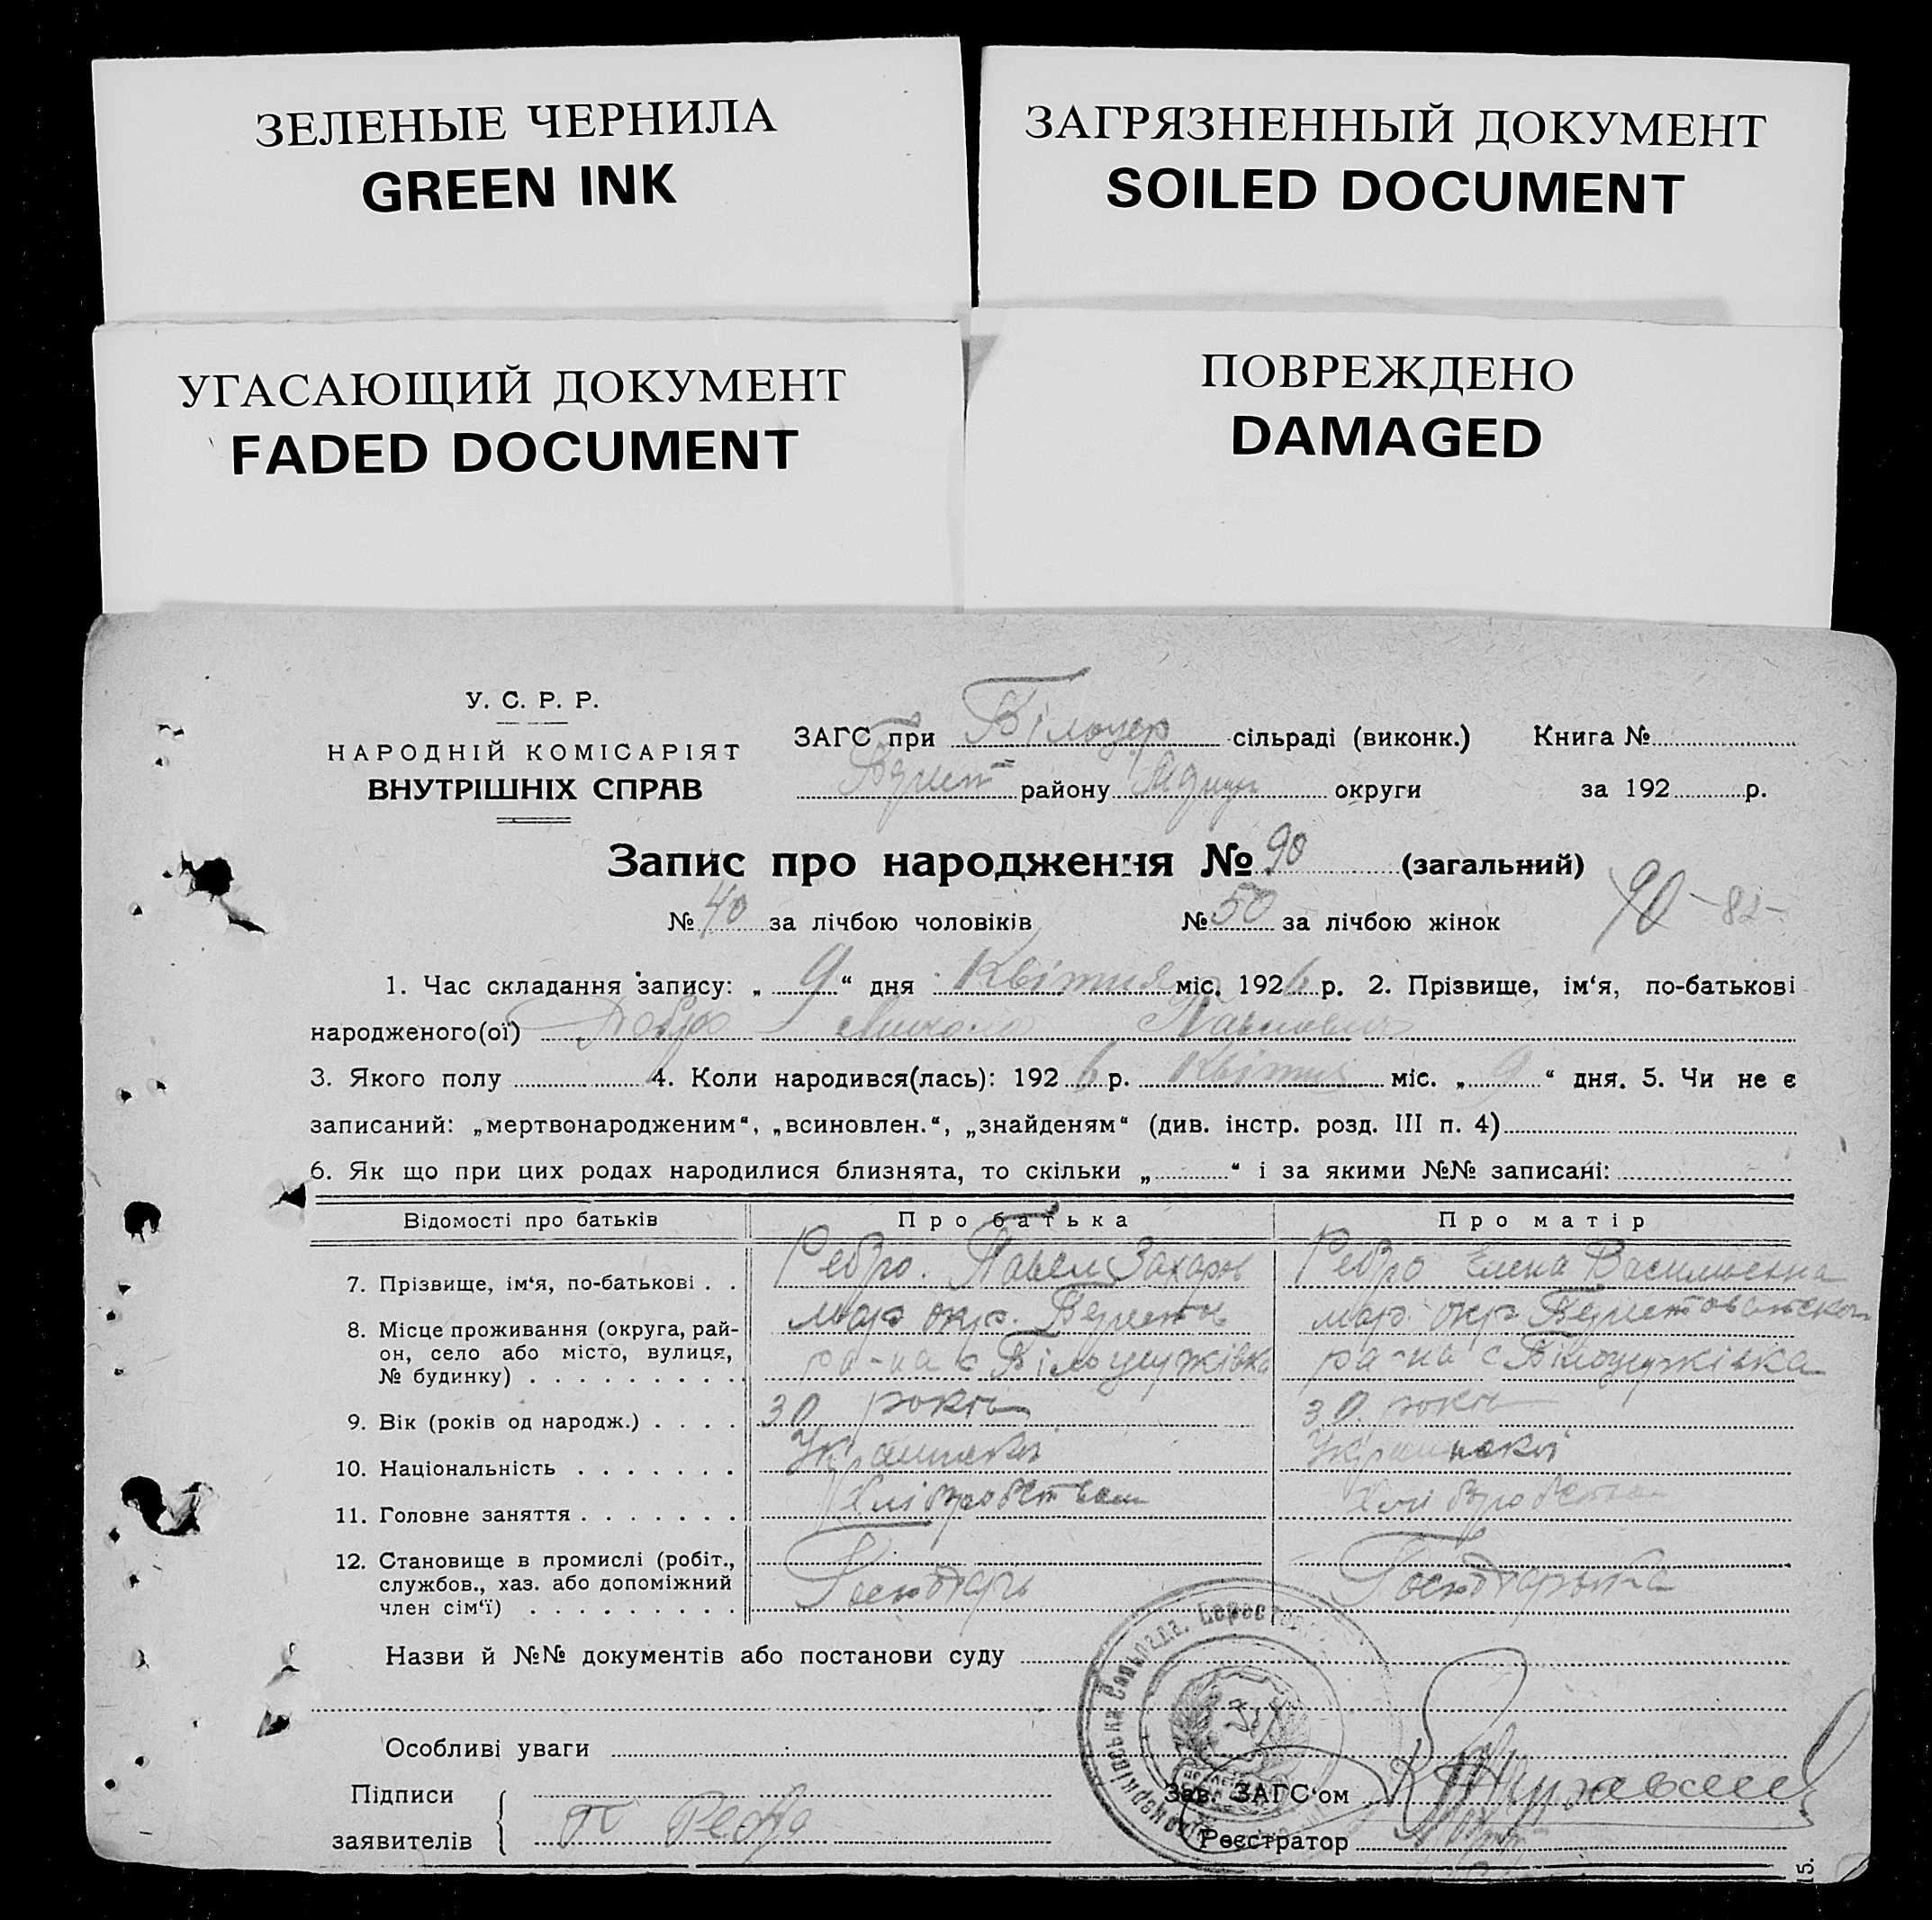 ЗЕЛЕНЫЕ ЧЕРНИЛА
GREEN INK
ЗАГРЯЗНЕННЫЙ ДОКУМЕНТ
SOILED DOCUMENT
УГАСАЮЩИЙ ДОКУМЕНТ
FADED DOCUMENT
ПОВРЕЖДЕНО
DAMAGED
У. С. Р. Р.
НАРОДНІЙ КОМІСАРІЯТ
ВНУТРІШНІХ СПРАВ
ЗАГС при сільраді (виконк.) Книга №
району округи за 192 р.
Запис про народження № 90 (загальний)
№ 40 за лічбою чоловіків № 50 за лічбою жінок 90 - 82 -
1. Час складання запису: „ 9 “ дня Квітня міс. 1926 р. 2. Прізвище, ім‘я, по-батькові
народженого(ої) Микола Павлович
3. Якого полу 4. Коли народився(лась): 1926 р. Квітня міс. „ 9 “ дня. 5. Чи не є
записаний: „мертвонародженим“, „всиновлен.“, „знайденям“ (див. інстр. розд. III п. 4)
6. Як що при цих родах народилися близнята, то скільки „ “ і за якими №№ записані:
Відомості про батьків Про батька Про матір
7. Прізвище, ім‘я, по-батькові . . Ребро. Павел Захаров Ребро Елена Васильевна
8. Місце проживання (округа, рай- мар окр. мар. окр
он, село або місто, вулиця, ра-на с ра-на с
№ будинку)
9. Вік (років од народж.) . . . . 30 років 30 років
10. Національність Української Української
11. Головне заняття Хліборобством Хліборобством
12. Становище в промислі (робіт.,
службов., хаз. або допоміжний Господарь Господарька
член сім‘ї)
Назви й №№ документів або постанови суду
Особливі уваги
Підписи
Зав. ЗАГС‘ом
заявителів П Ребро
Реєстратор